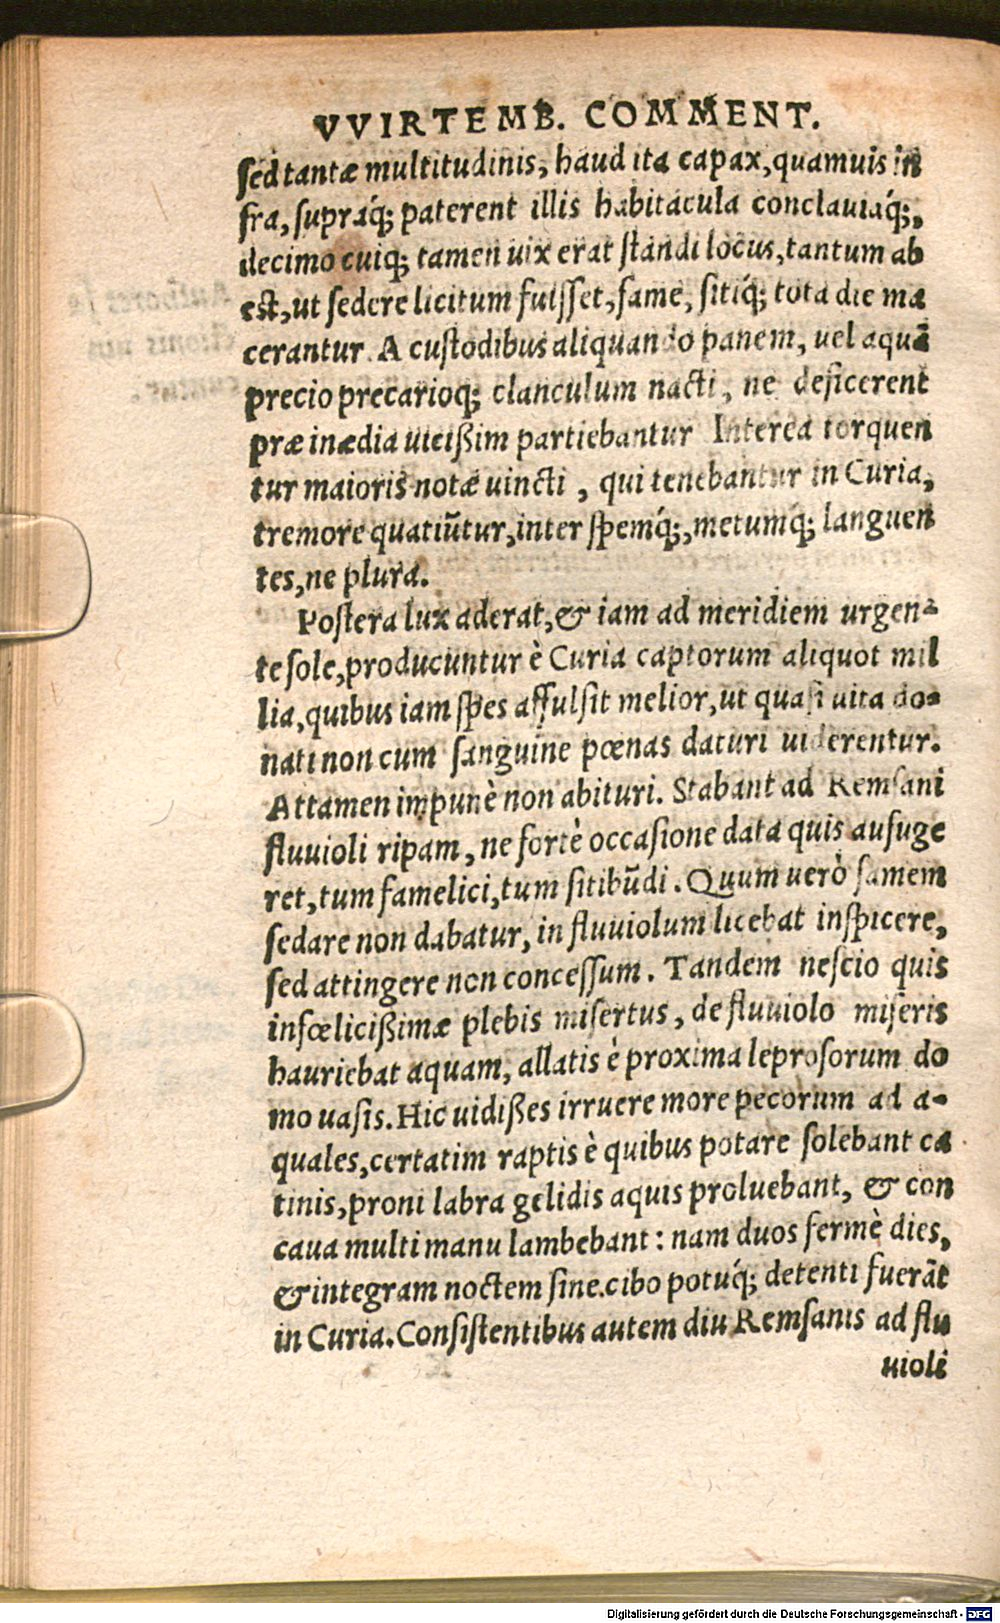 VVIRTEMB. COMMENT.
sed tantæ multitudinis, haud ita capax, quamuis in
fra, supráq́; paterent illis habitacula conclauiáq́;,
decimo cuiq; tamen uix erat standi locus, tantum ab
est, ut sedere licitum fuisset, fame, sitíq́; tota die ma
cerantur. A custodibus aliquando panem, uel aquã
precio precarioq; clanculum nacti, ne deficerent
præ inædia uicißim partiebantur Interea torquen
tur maioris notæ uincti, qui tenebantur in Curia,
tremore quatiũtur, inter spemq́;, metumq́; languen
tes, ne plura.
Postera lux aderat, & iam ad meridiem urgen-
te sole, producuntur è Curia captorum aliquot mil
lia, quibus iam spes affulsit melior, ut quasi uita do-
nati non cum sanguine pœnas daturi uiderentur.
Attamen impunè non abituri. Stabant ad Remsani
fluuioli ripam, ne fortè occasione data quis aufuge
ret, tum famelici, tum sitibũdi. Quum uerò famem
sedare non dabatur, in fluuiolum licebat inspicere,
sed attingere non concessum. Tandem nescio quis
infœlicißimæ plebis misertus, de fluuiolo miseris
hauriebat aquam, allatis è proxima leprosorum do
mo uasis. Hic uidißes irruere more pecorum ad a-
quales, certatim raptis è quibus potare solebant ca
tinis, proni labra gelidis aquis proluebant, & con
caua multi manu lambebant: nam duos fermè dies,
& integram noctem sine cibo potuq́; detenti fuerãt
in Curia. Consistentibus autem diu Remsanis ad flu
uioli
Digitalisierung gefördert durch die Deutsche Forschungsgemeinschaft - DFG